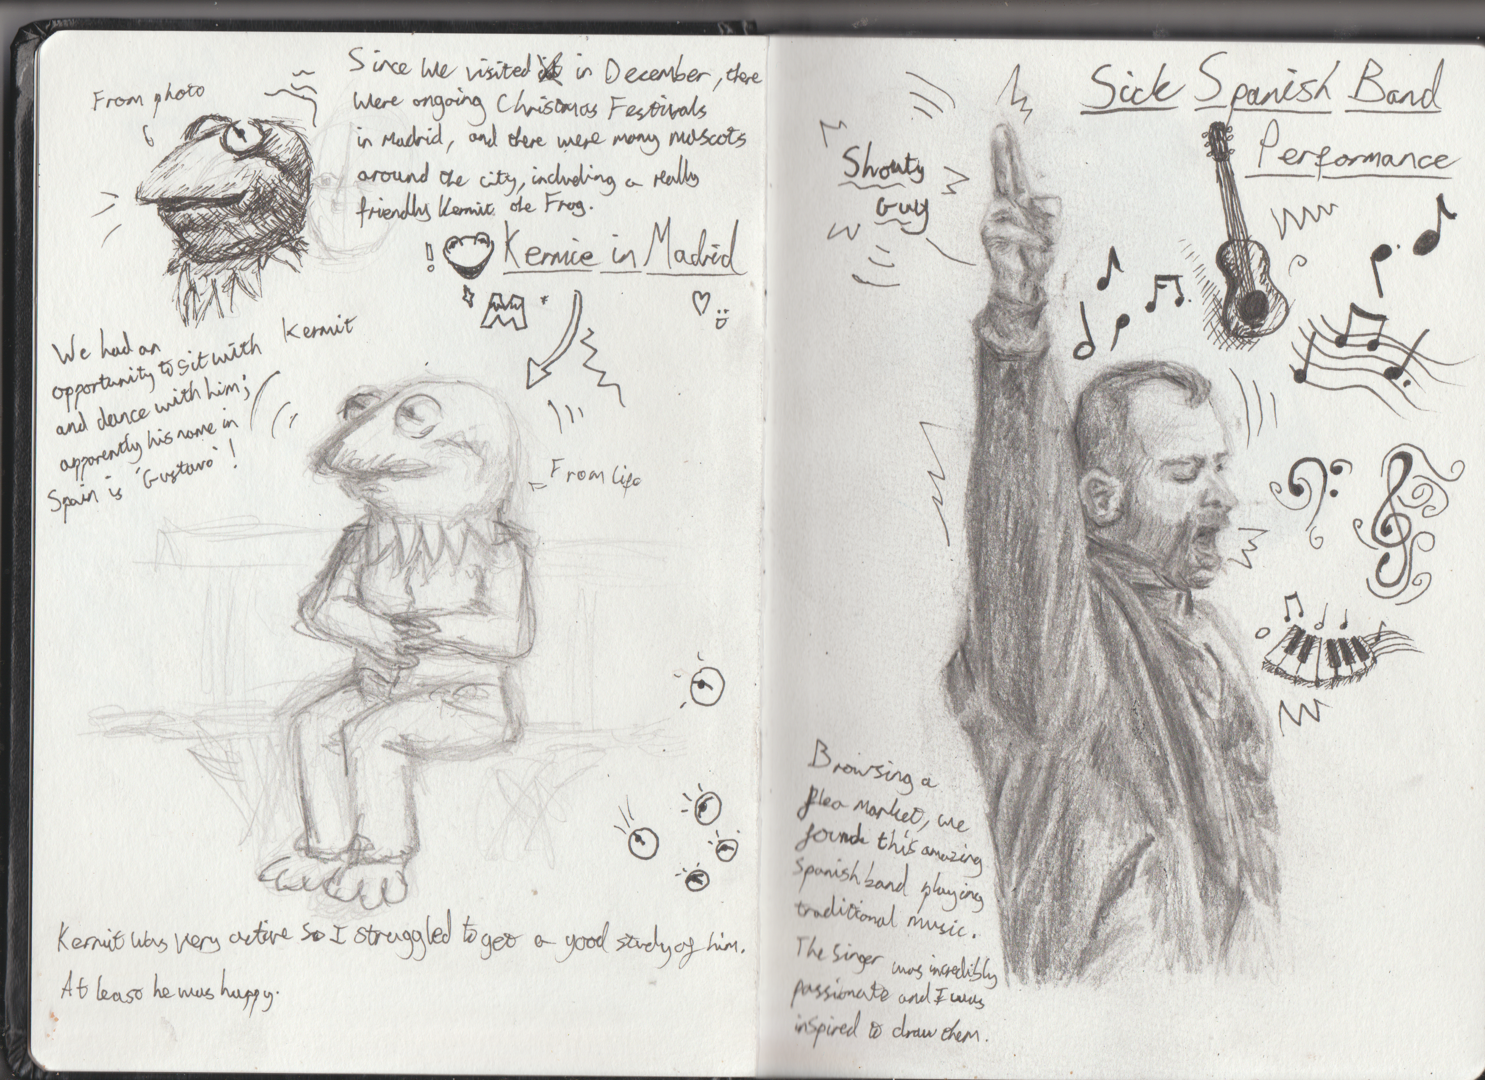 From photo
Since we visited in December, there
were ongoing Christmas Festivals
in Madrid, and there were many mascots
around the city, including a really
friendly Kermit the Frog.
! Kermie in Madrid
We had an
opportunity to sit with Kermit
and dance with him;
apparently his name in
Spain is 'Gustavo'!
From life
Kermit was very active so I struggled to get a good study of him.
At least he was happy.
Sick Spanish Band
Performance
Shouty
Guy
Browsing a
flea market, we
found this amazing
Spanish band playing
traditional music.
The singer was incredibly
passionate and I was
inspired to draw them.